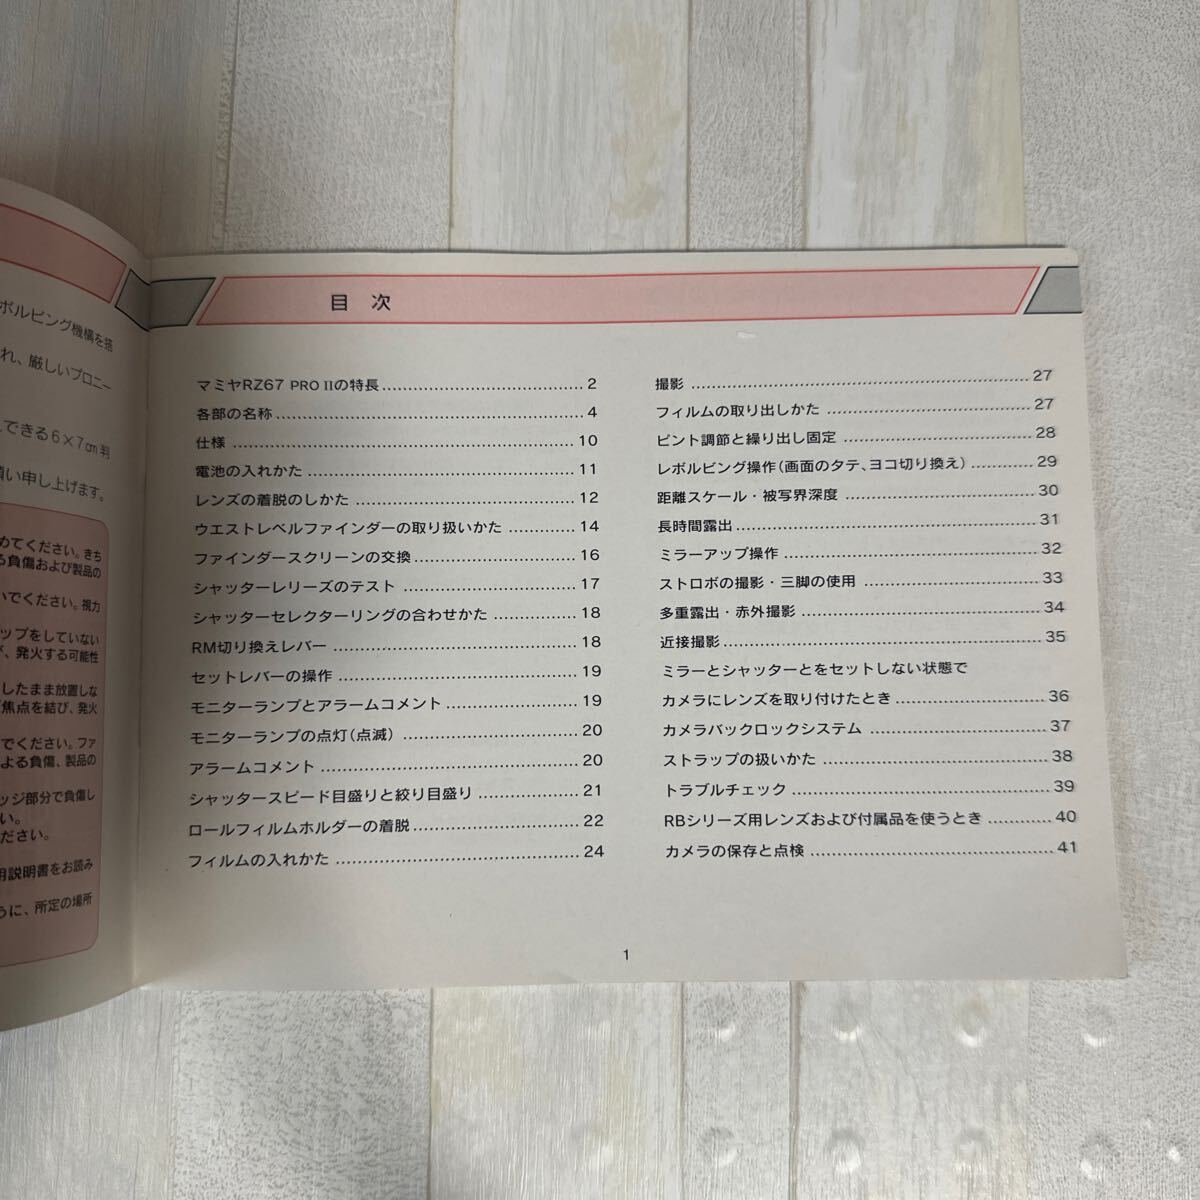 ボルビング機構を搭
れ、厳しいプロニー
できる6×7cm判
願い申し上げます。
めてください。きち
る負傷および製品の
いでください。視力
ップをしていない
、発火する可能性
したまま放置しな
焦点を結び、発火
でください。ファ
よる負傷、製品の
ッジ部分で負傷し
い。
ださい。
用説明書をお読み
うに、所定の場所
目次
マミヤRZ67 PRO IIの特長 2
各部の名称 4
仕様 10
電池の入れかた 11
レンズの着脱のしかた 12
ウエストレベルファインダーの取り扱いかた 14
ファインダースクリーンの交換 16
シャッターレリーズのテスト 17
シャッターセレクターリングの合わせかた 18
RM切り換えレバー 18
セットレバーの操作 19
モニターランプとアラームコメント 19
モニターランプの点灯(点滅) 20
アラームコメント 20
シャッタースピード目盛りと絞り目盛り 21
ロールフィルムホルダーの着脱 22
フィルムの入れかた 24
撮影 27
フィルムの取り出しかた 27
ピント調節と繰り出し固定 28
レボルビング操作(画面のタテ、ヨコ切り換え) 29
距離スケール・被写界深度 30
長時間露出 31
ミラーアップ操作 32
ストロボの撮影・三脚の使用 33
多重露出・赤外撮影 34
近接撮影 35
ミラーとシャッターとをセットしない状態で
カメラにレンズを取り付けたとき 36
カメラバックロックシステム 37
ストラップの扱いかた 38
トラブルチェック 39
RBシリーズ用レンズおよび付属品を使うとき 40
カメラの保存と点検 41
1